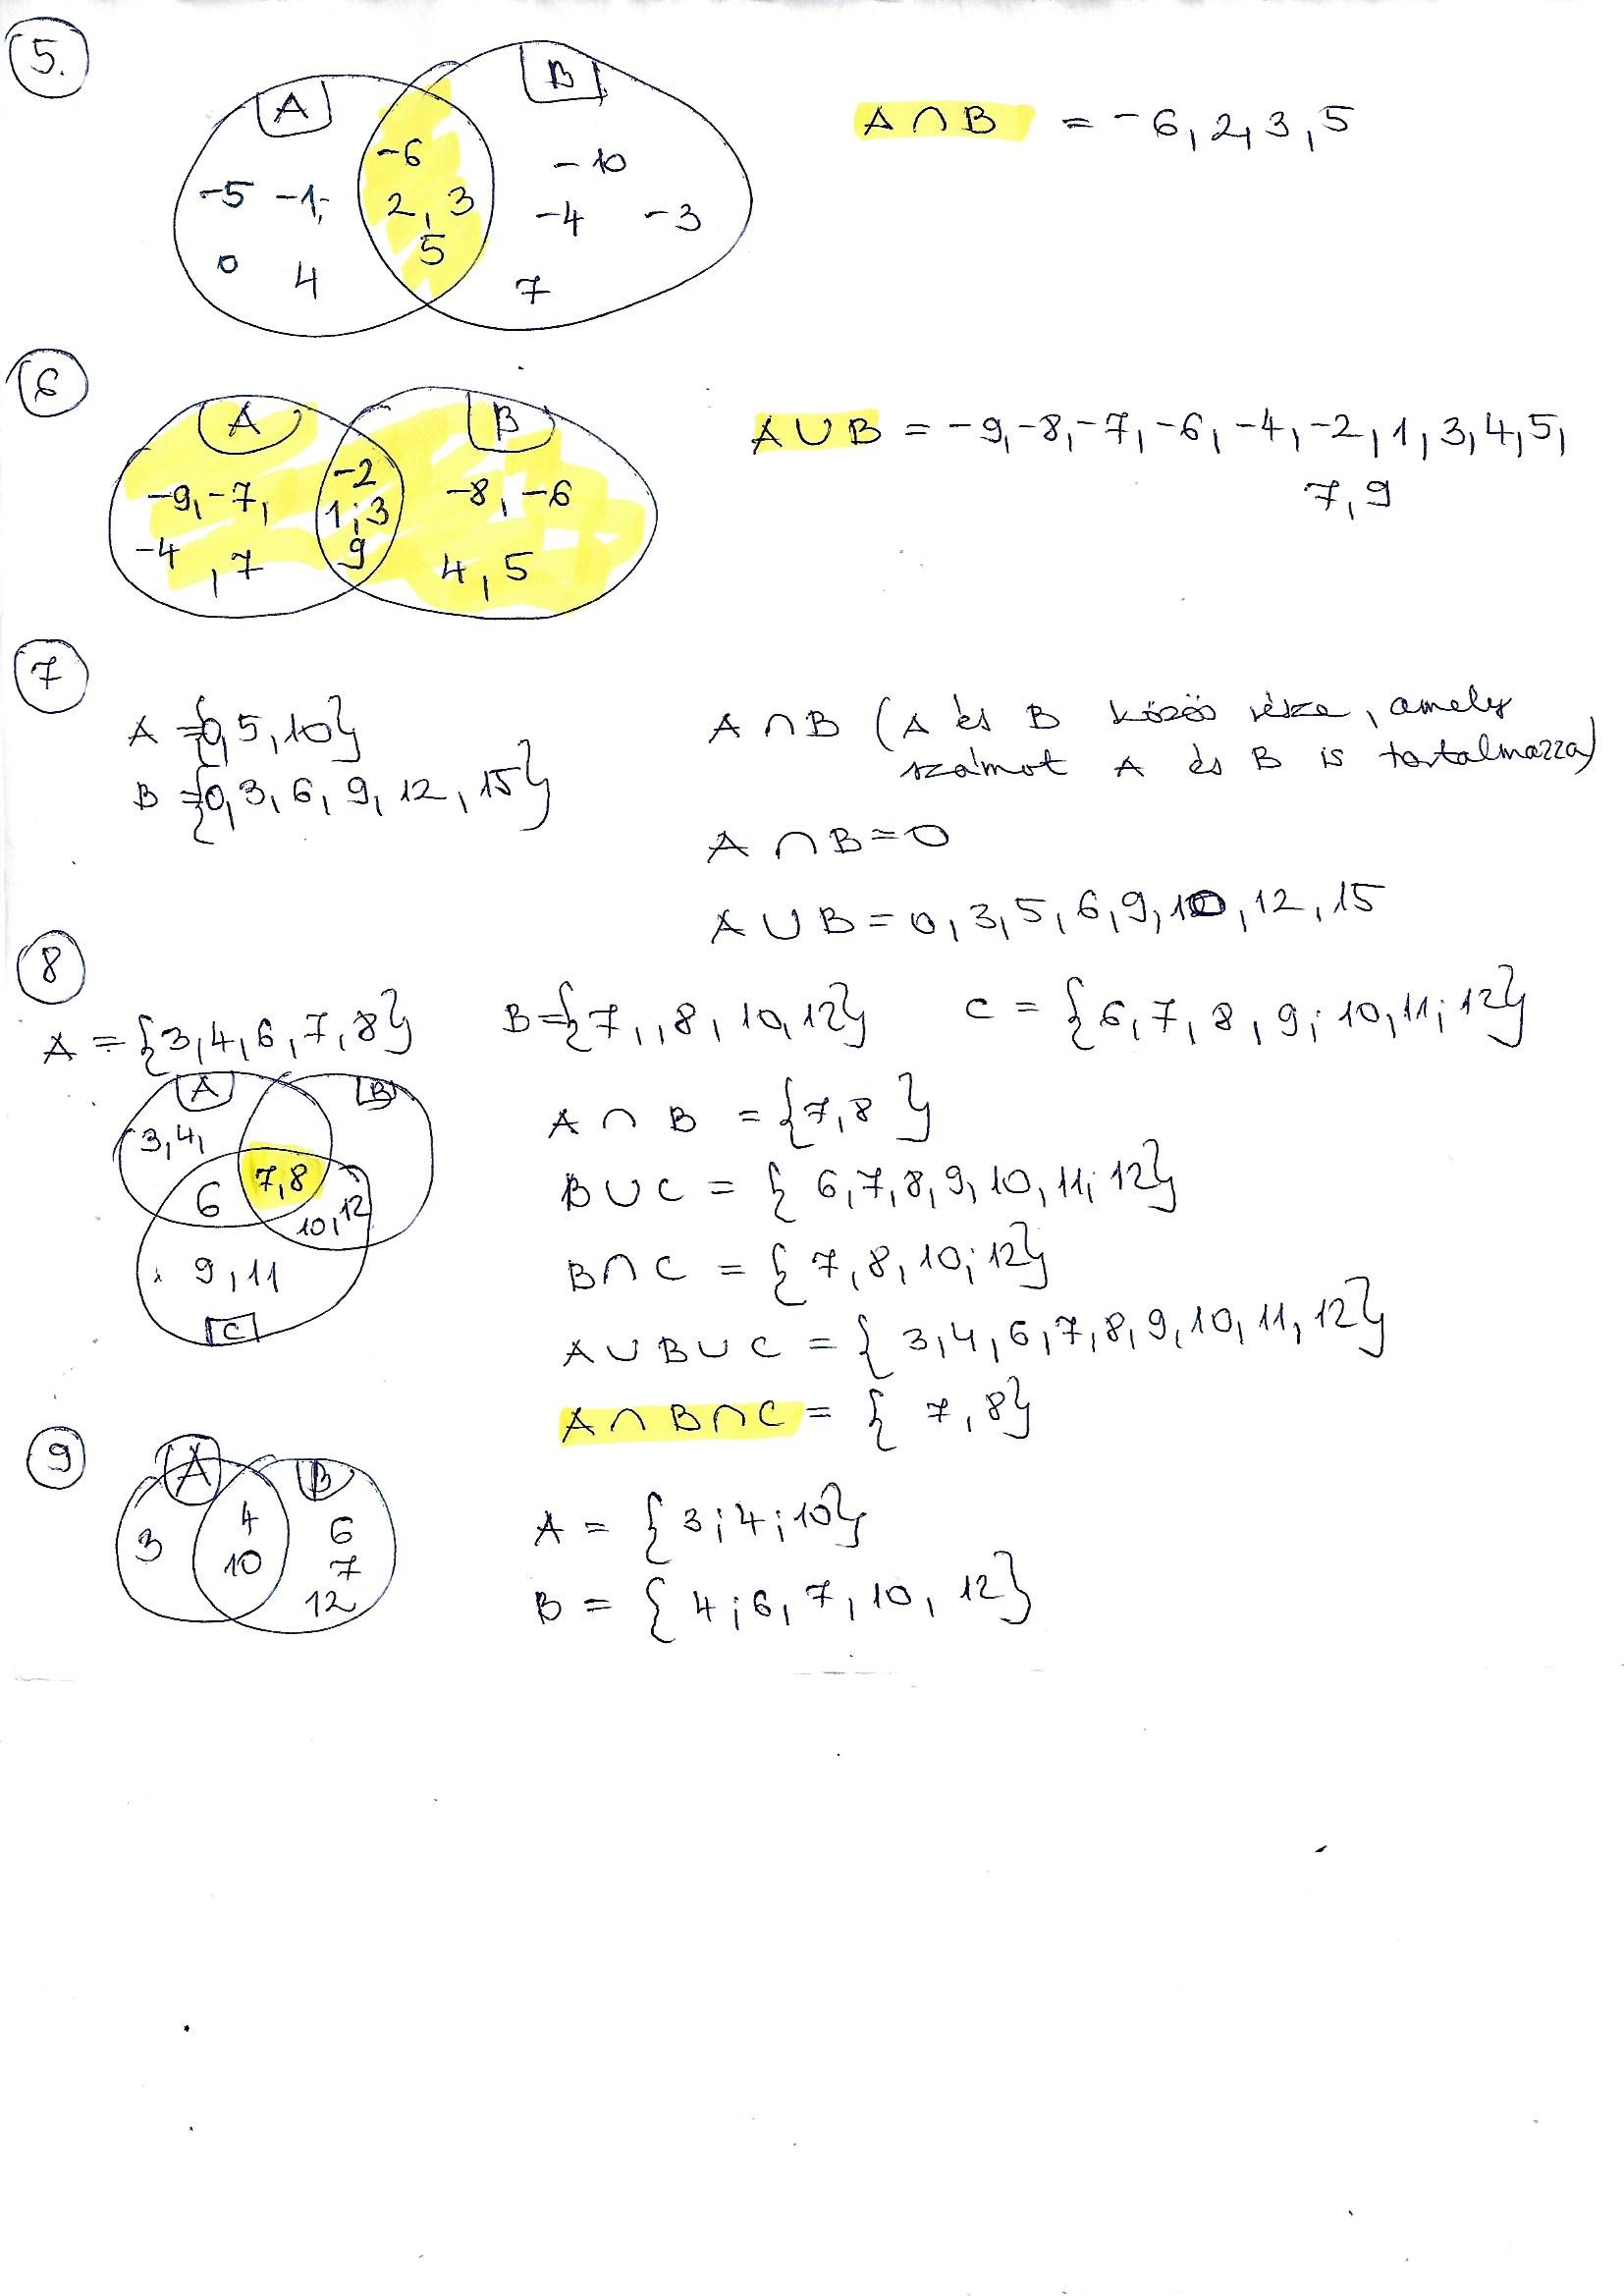 5.
A B
-6 -10
-5 -1; 2, 3 -4 -3
5
0 4 7
A ∩ B = -6, 2, 3, 5
6
A B
-9, -7, -2 -8, -6
1; 3
-4, 7 9 4, 5
A ∪ B = -9, -8, -7, -6, -4, -2, 1, 3, 4, 5,
7, 9
7
A = {0, 5, 10}
B = {0, 3, 6, 9, 12, 15}
A ∩ B (A és B közös része, amely
számot A és B is tartalmazza)
A ∩ B = 0
A ∪ B = 0, 3, 5, 6, 9, 10, 12, 15
8
A = {3, 4, 6, 7, 8} B = {7,, 8, 10, 12} C = {6, 7, 8, 9; 10, 11; 12}
A B
3, 4,
6 7, 8
10, 12
9, 11
C
A ∩ B = {7, 8}
B ∪ C = {6, 7, 8, 9, 10, 11; 12}
B ∩ C = {7, 8, 10; 12}
A ∪ B ∪ C = {3, 4, 6, 7, 8, 9, 10, 11, 12}
A ∩ B ∩ C = {7, 8}
9
A B
4 6
3 10 7
12
A = {3; 4; 10}
B = {4; 6, 7, 10, 12}